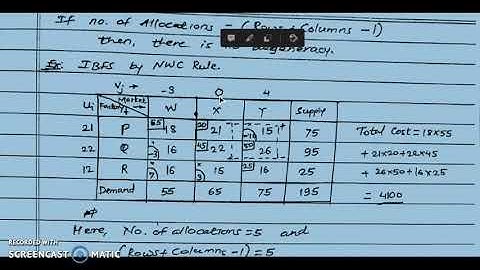 If no. of allocations = (Rows + Columns - 1)
then, there is no degeneracy.
Ex: IBFS by NWC Rule.
Vj → -3 0 4
Ui Factory Market W X Y Supply
21 P 55 18 20 21 -10 15 + 75 Total Cost = 18×55
22 Q -3 16 45 22 50 26 95 + 21×20 + 22×45
12 R 7 16 3 15 25 16 25 + 26×50 + 16×25
Demand 55 65 75 195 = 4100
Here, No. of allocations = 5 and
(Rows + Columns - 1) = 5
RECORDED WITH
SCREENCAST MATIC